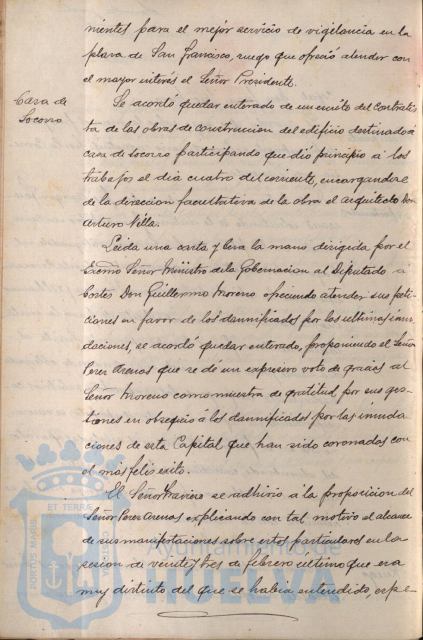 nientes para el mejor servicio de vigilancia en la
plaza de San Francisco, ruego que ofreció atender con
el mayor interés el Señor Presidente.
Casa de
Socorro
Se acordó quedar enterado de un escrito del Contratis
ta de las obras de construccion del edificio destinado á
casa de socorro participando que dió principio á los
trabajos el dia cuatro del corriente, encargandose
de la direccion facultativa de la obra el arquitecto Don
Arturo Villa.
Leida una carta y besa la mano dirigida por el
Excmo Señor Ministro de la Gobernacion al Diputado á
Cortes Don Guillermo Moreno ofreciendo atender sus peti
ciones en favor de los dannificados por las ultimas inun
daciones, se acordó quedar enterado, proponiendo el Señor
Perez Arenas que se dé un expresivo voto de gracias al
Señor Moreno como muestra de gratitud por sus ges
tiones en obsequio á los dannificados por las inunda
ciones de esta Capital que han sido coronados con
el más feliz exito.
El Señor se adhirió á la proposicion del
Señor Perez Arenas explicando con tal motivo el alcance
de sus manifestaciones sobre estos particulares en la se
sion de veinte y tres de febrero ultimo que era
muy distinto del que se habia entendido, espe-
PORTUS MARIS
ET TERRAE
CUSTODIA
Ayuntamiento de
HUELVA